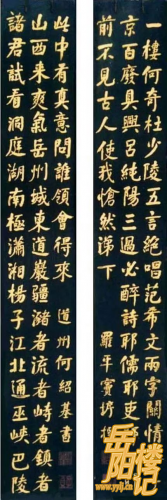 一樓何奇杜少陵五言絕唱范希文兩字關情
京百廢具興呂純陽三過必醉詩耶儒耶吏
前不見古人使我愴然涕下 羅平竇垿撰
諸君試看洞庭湖南極瀟湘揚子江北通巫峽巴陵
山西來爽氣岳州城東道巖疆瀦者流者峙者鎮者
此中有真意問誰領會得來 道州何紹基書
岳阳楼记